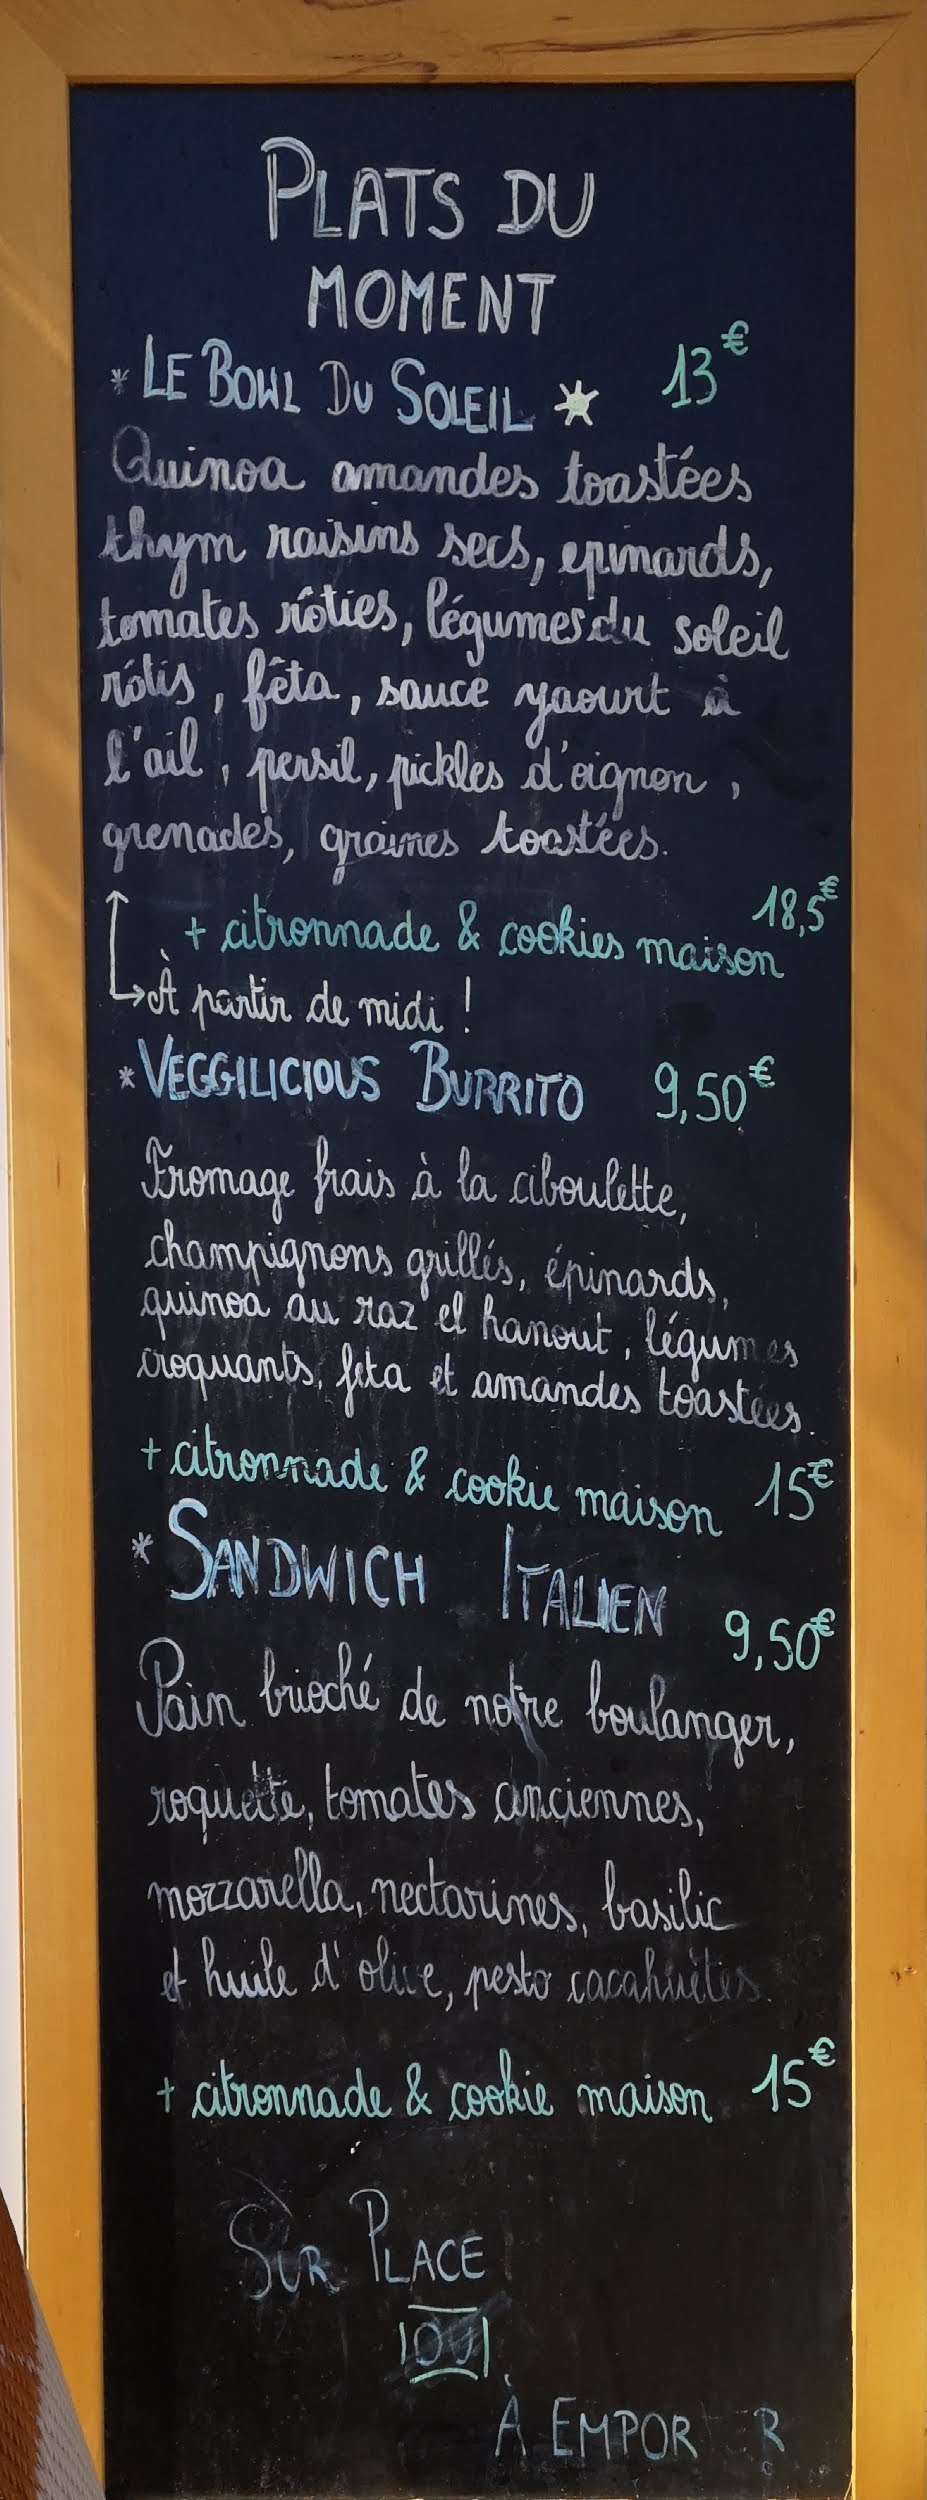 PLATS DU
MOMENT
* LE BOWL DU SOLEIL ☀ 13€
Quinoa amandes toastées
thym raisins secs, epinards,
tomates rôties, légumes du soleil
rôtis, fêta, sauce yaourt à
l'ail, persil, pickles d'oignon,
grenades, graines toastées.
+ citronnade & cookies maison 18,5€
À partir de midi !
* VEGGILICIOUS BURRITO 9,50€
Fromage frais à la ciboulette,
champignons grillés, épinards,
quinoa au raz el hanout, légumes
croquants, feta et amandes toastées.
+ citronnade & cookie maison 15€
* SANDWICH ITALIEN 9,50€
Pain brioché de notre boulanger,
roquette, tomates anciennes,
mozzarella, nectarines, basilic
et huile d'olive, pesto cacahuètes.
+ citronnade & cookie maison 15€
SUR PLACE
OU
À EMPOR ER